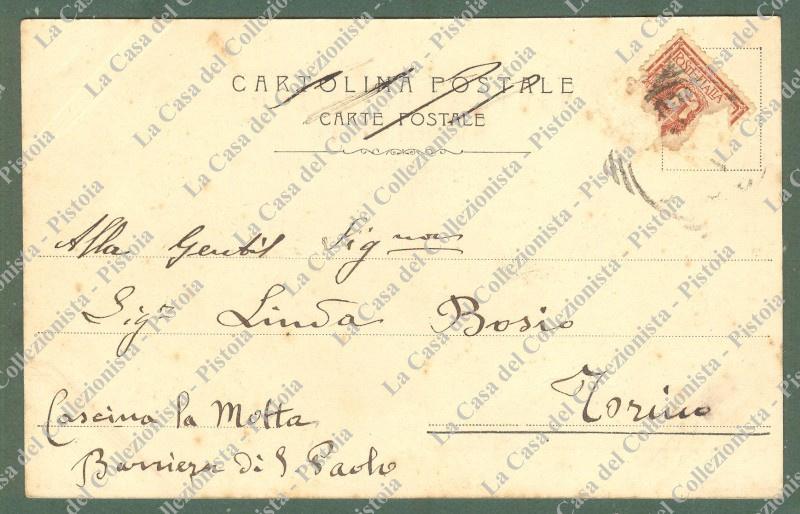 CARTOLINA POSTALE
CARTE POSTALE
POSTE ITALIA
Alla Gentil Sigra
Sigra Linda Bosio
Torino
Cascina la Motta
Barriera di S Paolo
La Casa del Collezionista - Pistoia